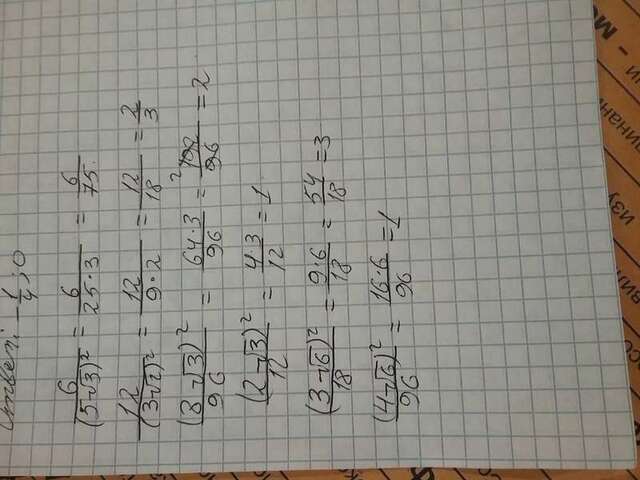 Ответ: -1/4; 0
6/(5-√3)² = 6/25·3 = 6/75.
12/(3√2)² = 12/9·2 = 12/18 = 2/3
(8-√3)²/96 = 64·3/96 = 2 192/96 = 2
(2-√3)²/12 = 4·3/12 = 1
(3-√6)²/18 = 9·6/18 = 54/18 = 3
(4-√6)²/96 = 16·6/96 = 1